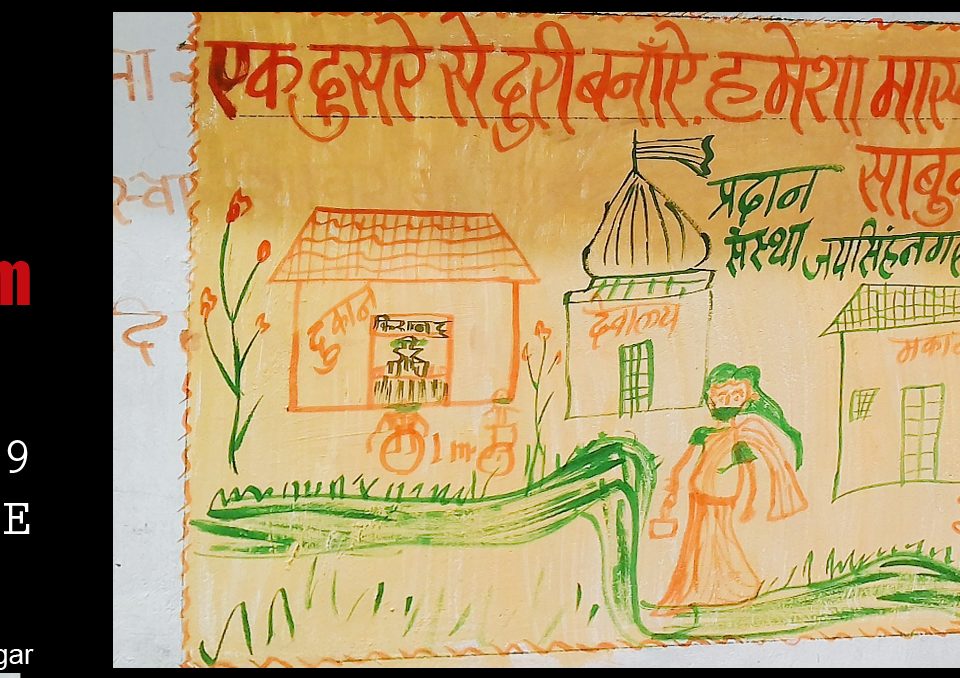 एक दुसरे से दुरी बनाँऐ. हमेशा मास
साबु
प्रदान
संस्था जयसिंहनगर
दुकान
किराना
देवालय
मकान
1m
m
9
E
gar
ना
स्वा
दि